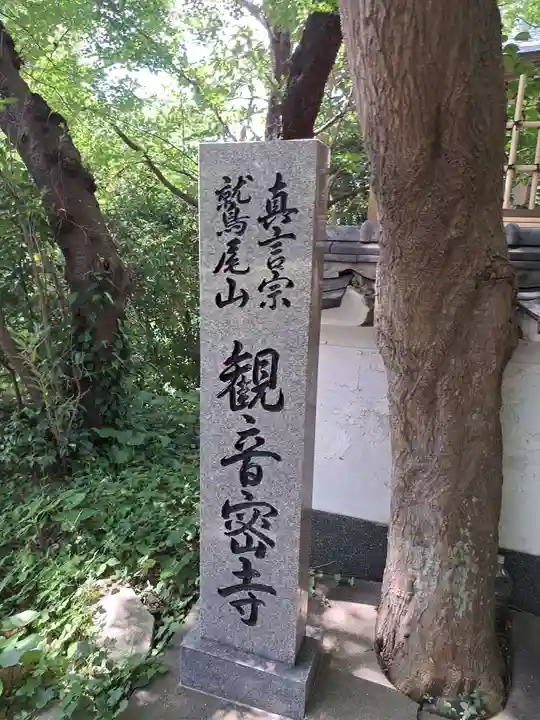 真言宗
鷲尾山
観音密寺